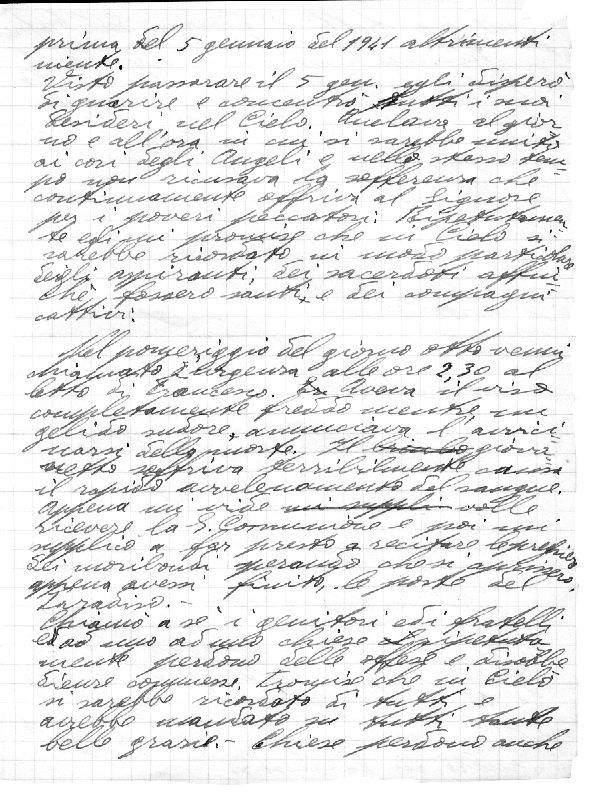 prima del 5 gennaio del 1941 altrimenti
niente.
Visto passarare il 5 gen. egli disperò
di guarire e concentrò tutti i suoi
desideri nel Cielo. Anelava al gior-
no e all'ora in cui si sarebbe unito
ai cori degli Angeli e nello stesso tem=
po non ricusava la sofferenza che
continuamente offriva al Signore
per i poveri peccatori. Ripetutamen
te egli mi promise che in Cielo si
sarebbe ricordato in modo particolare
degli aspiranti, dei sacerdoti affin
chè fossero santi, e dei compagni
cattivi.
Nel pomeriggio del giorno otto venni
chiamato d'urgenza alle ore 2,30 al
letto di Francesco. Aveva il viso
completamente freddo mentre un
gelido sudore annunciava l'avvici=
narsi della morte. Il giova
netto soffriva terribilmente causa
il rapido avvelenamento del sangue.
Appena mi vide mi suppli volle
ricevere la S. Comunione e poi mi
supplicò a far presto a recitare le preghiere
dei moribondi sperando che si aprissero,
appena avessi finito, le porte del
Paradiso.-
Chiamò a sè i genitori ed i fratelli
ed ad uno ad uno chiese ripetuta
mente perdono delle offese e disobbe
dienze commesse. Promise che in Cielo
si sarebbe ricordato di tutti e
avrebbe mandato su tutti tante
belle grazie.- Chiese perdono anche